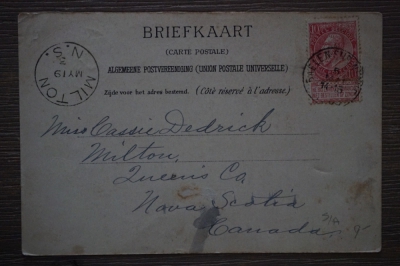 BRIEFKAART
(CARTE POSTALE)
ALGEMEENE POSTVEREENIGING (UNION POSTALE UNIVERSELLE)
Zijde voor het adres bestemd. (Côté réservé à l'adresse.)
MILTON
N.S.
MY 19
10
Miss Cassie Dedrick
Milton,
Queens Co,
Nova Scotia
Canada